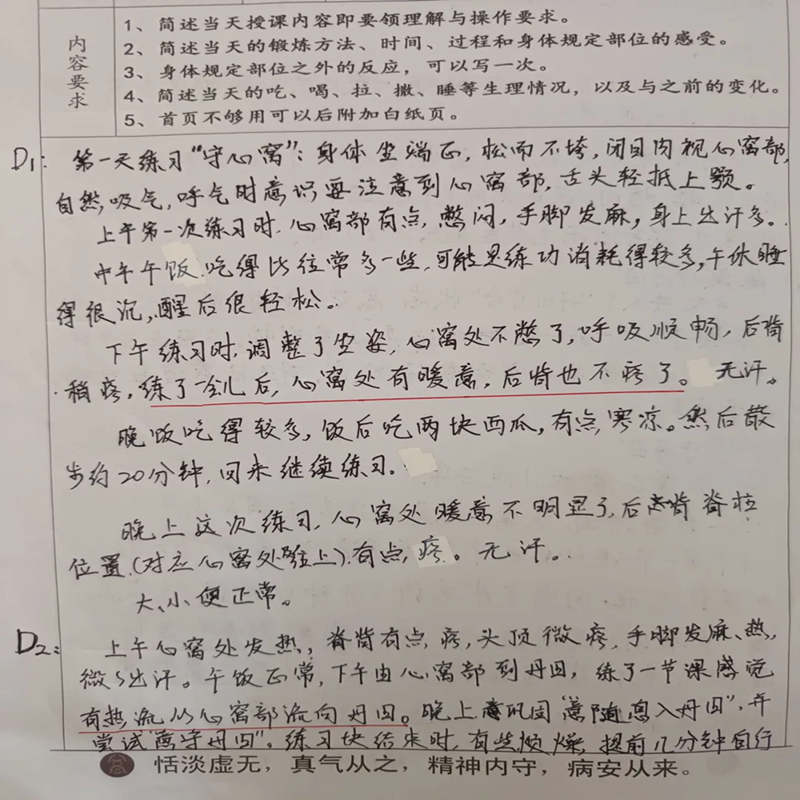 内容要求
1、简述当天授课内容即要领理解与操作要求。
2、简述当天的锻炼方法、时间、过程和身体规定部位的感受。
3、身体规定部位之外的反应，可以写一次。
4、简述当天的吃、喝、拉、撒、睡等生理情况，以及与之前的变化。
5、首页不够用可以后附加白纸页。
D1: 第一天练习“守心窝”：身体坐端正，松而不垮，闭目内视心窝部，
自然吸气，呼气时意识要注意到心窝部，舌头轻抵上颚。
上午第一次练习时，心窝部有点憋闷，手脚发麻，身上出汗多。
中午午饭吃得比往常多一些，可能是练功消耗得较多，午休睡
得很沉，醒后很轻松。
下午练习时，调整了坐姿，心窝处不憋了，呼吸顺畅，后背
稍疼，练了一会儿后，心窝处有暖意，后背也不疼了。无汗。
晚饭吃得较多，饭后吃两块西瓜，有点寒凉。然后散
步约20分钟，回来继续练习。
晚上这次练习，心窝处暖意不明显了，后背脊柱
位置（对应心窝处上）有点疼。无汗。
大、小便正常。
D2: 上午心窝处发热，脊背有点疼，头顶微疼，手脚发麻、热，
微微出汗。午饭正常，下午由心窝部到丹田，练了一节课感觉
有热流从心窝部流向丹田。晚上巩固“意随息入丹田”，并
尝试“意守丹田”。练习快结束时，有些烦燥，提前几分钟自行
恬淡虚无，真气从之，精神内守，病安从来。